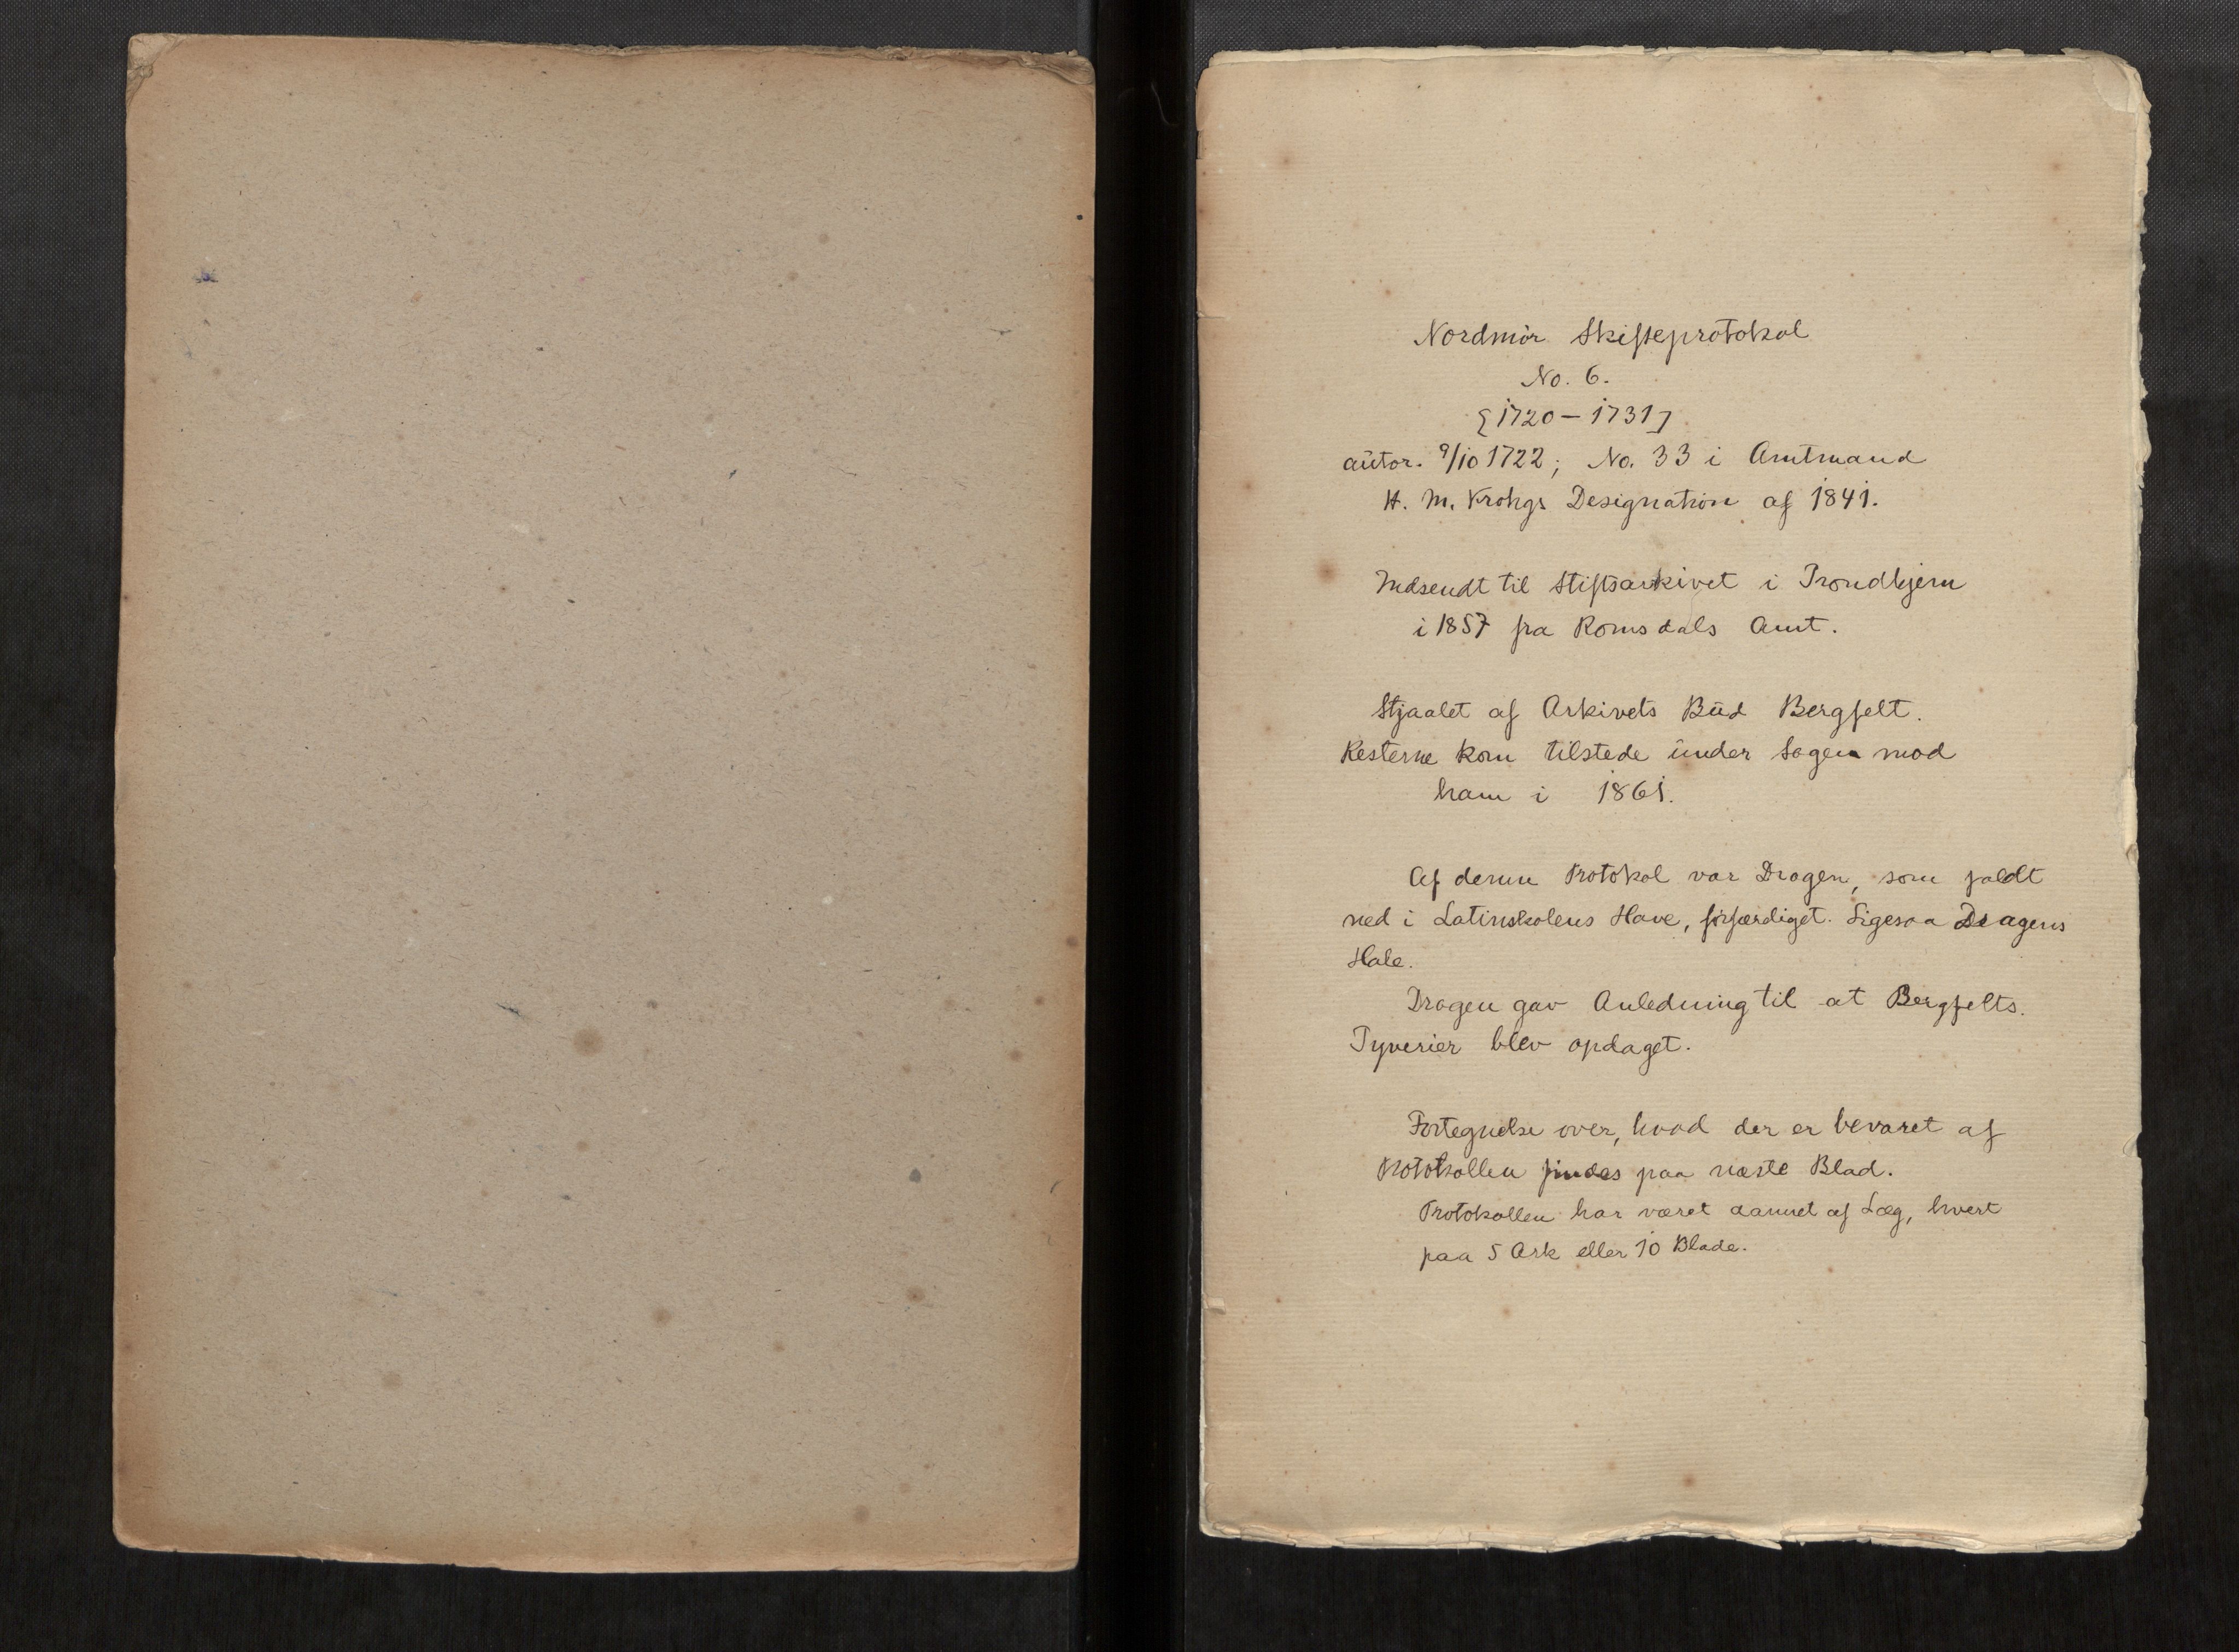 Nordmør Skifteprotokol
No. 6.
[1720 – 1731]
autor. 9/10 1722; No. 33 i Amtmand
H. M. Krohgs Designation af 1841.
Indsendt til Stiftsarkivet i Trondhjem
i 1857 fra Romsdals Amt.
Stjaalet af Arkivets Bud Bergfelt.
Resterne kom tilstede under Sagen mod
ham i 1861.
Af denne Protokol var Dragen, som faldt
ned i Latinskolens Have, forfærdiget. Ligesaa Dragens
Hale.
Dragen gav Anledning til at Bergfelts
Tyverier blev opdaget.
Fortegnelse over, hvad der er bevaret af
Protokollen findes paa næste Blad.
Protokollen har været dannet af Læg, hvert
paa 5 Ark eller 10 Blade.